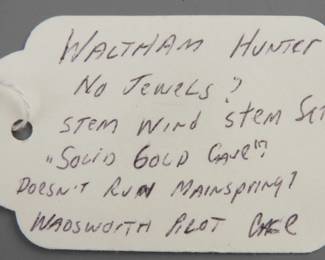 WALTHAM HUNTER
NO JEWELS?
STEM WIND STEM SET
"SOLID GOLD CASE"?
DOESN'T RUN MAINSPRING?
WADSWORTH PILOT CASE